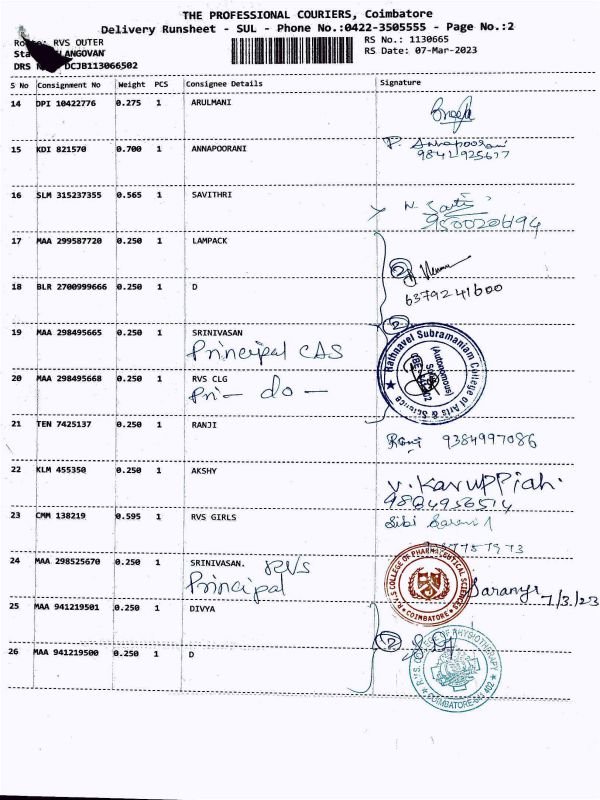 THE PROFESSIONAL COURIERS, Coimbatore
Delivery Runsheet - SUL - Phone No.:0422-3505555 - Page No.:2
RVS OUTER
RS No.: 1130665
RS Date: 07-Mar-2023
DCJB113066502
S No Consignment No Weight PCS Consignee Details Signature
14 DPI 10422776 0.275 1 ARULMANI
15 KDI 821570 0.700 1 ANNAPOORANI P. Annapoorani
16 SLM 315237355 0.565 1 SAVITHRI
17 MAA 299587720 0.250 1 LAMPACK
2
18 BLR 2700999666 0.250 1 D 6379241600
2
19 MAA 298495665 0.250 1 SRINIVASAN
Principal CAS
Rathnavel Subramaniam College of Arts & Science
(Autonomous)
20 MAA 298495668 0.250 1 RVS CLG
Pri - do -
21 TEN 7425137 0.250 1 RANJI 9384997086
22 KLM 455350 0.250 1 AKSHY V. Karuppiah.
9884956514
23 CMM 138219 0.595 1 RVS GIRLS
24 MAA 298525670 0.250 1 SRINIVASAN. RVS
Principal
R.V.S. COLLEGE OF PHARMACEUTICAL SCIENCES
COIMBATORE
Saranya 7/3/23
25 MAA 941219501 0.250 1 DIVYA
2
26 MAA 941219500 0.250 1 D
R.V.S. COLLEGE OF PHYSIOTHERAPY
COIMBATORE-641 402